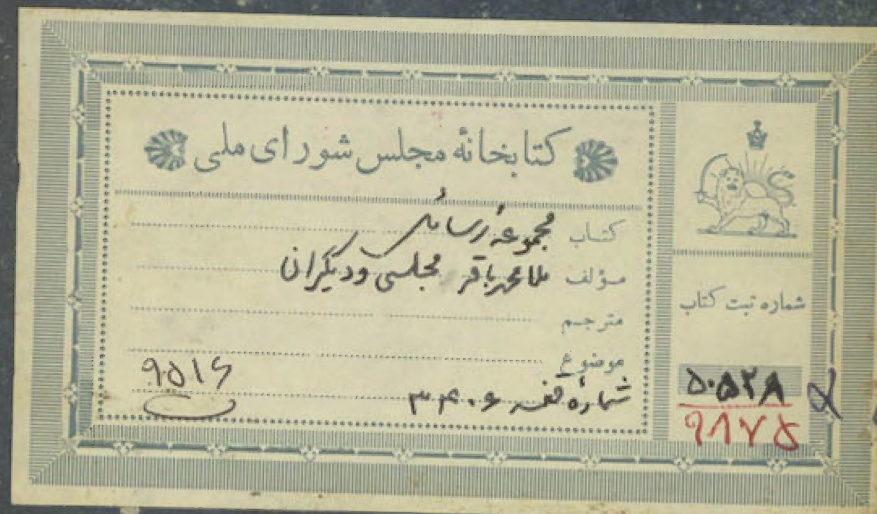 کتابخانهٔ مجلس شورای ملی
کتاب مجموعهٔ رسائل
مؤلف ملا محمد باقر مجلسی و دیگران
مترجم
موضوع
شماره قفسه ۳۴۰۶
۹۵۱۶
شماره ثبت کتاب
۵۰۵۲۸
۹۸۷۵